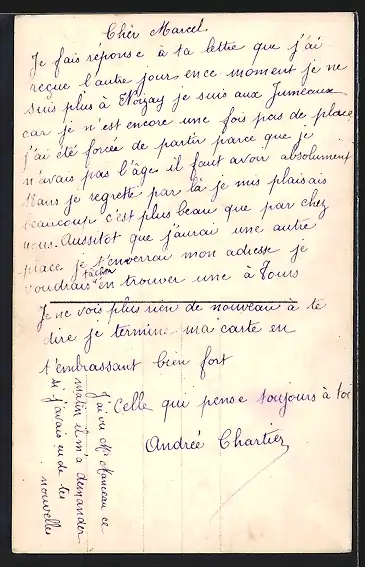 Chèr Marcel
Je fais réponse à ta lettre que j'ai
reçue l'autre jours en ce moment je ne
suis plus à Noyay je suis aux Jumeaux
car je n'est encore une fois pas de place
j'ai été forcée de partir parce que je
n'avais pas l'âge il faut avoir absolument
18ans je regrette par là je mis plaisais
beaucoup c'est plus beau que par chez
nous. Aussitôt que j'aurai une autre
place je t'enverrai mon adresse je
voudrais tacher en trouver une à Tours
Je ne vois plus rien de nouveau à te
dire je termine ma carte en
t'embrassant bien fort
Celle qui pense toujours à toi
Andrée Chartier
J'ai vu Mr Manceau ce
matin il m'a demander
si j'avais eu de tes
nouvelles